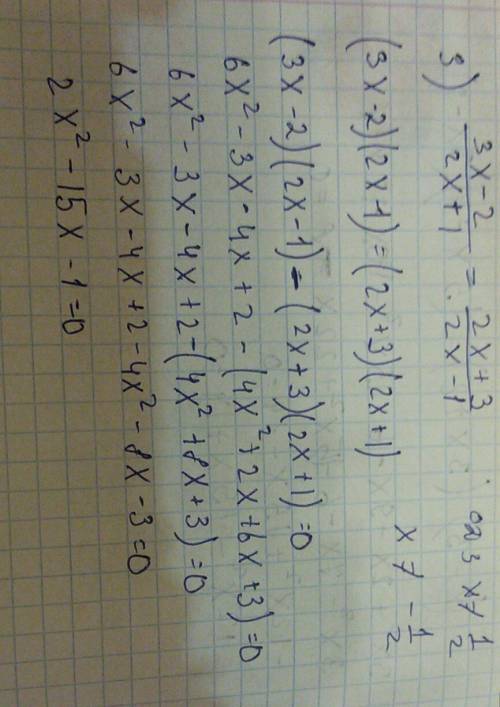 3) (3x-2)/(2x+1) = (2x+3)/(2x-1) ОДЗ x≠1/2
x ≠ -1/2
(3x-2)(2x-1)=(2x+3)(2x+1)
(3x-2)(2x-1)-(2x+3)(2x+1)=0
6x²-3x-4x+2-(4x²+2x+6x+3)=0
6x²-3x-4x+2-(4x²+8x+3)=0
6x²-3x-4x+2-4x²-8x-3=0
2x²-15x-1=0